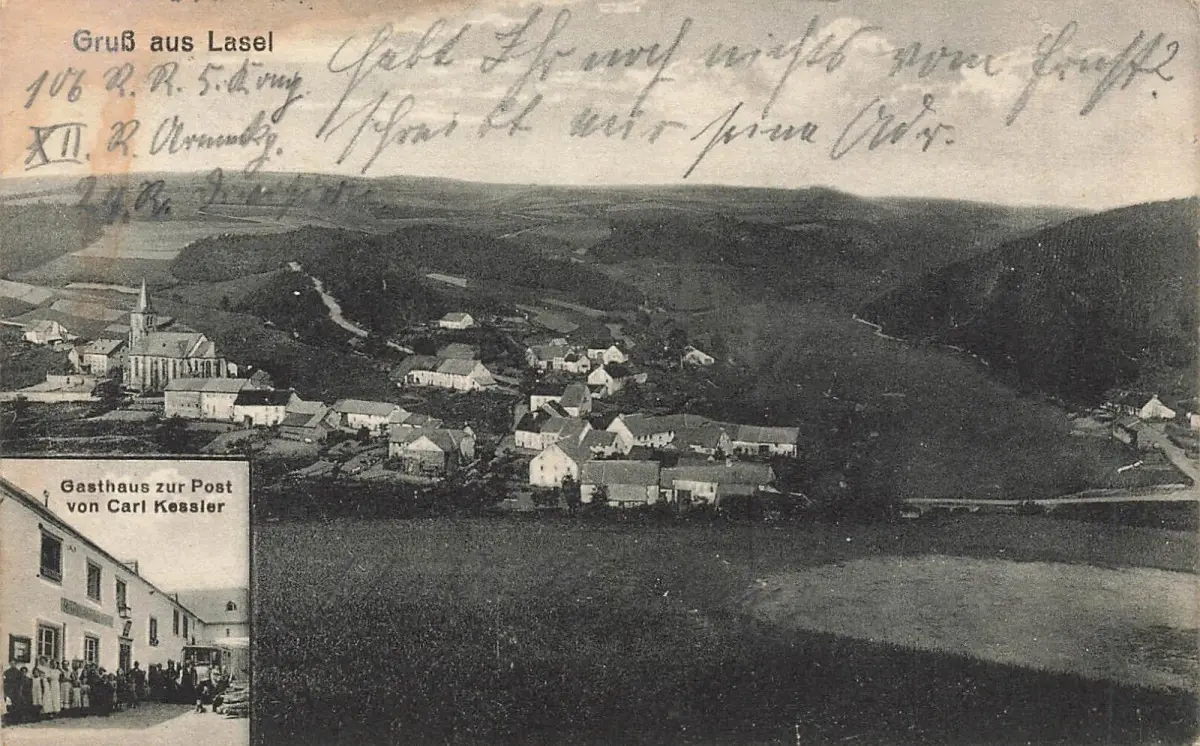 Gruß aus Lasel
Habt Ihr noch nichts vom Ernst?
schreibt mir seine Adr.
106 R. R. 5. Komp.
XII. R. Armeekp.
24. R. Division
Gasthaus zur Post
von Carl Kessler